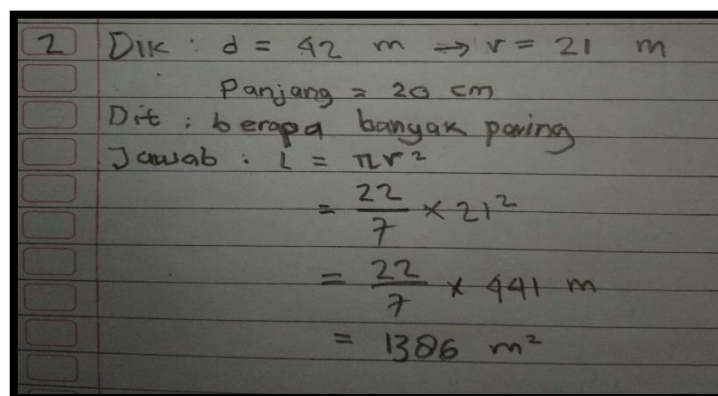 2 Dik : d = 42 m => r = 21 m
Panjang = 20 cm
Dit : berapa banyak paving
Jawab : L = πr²
= 22/7 × 21²
= 22/7 × 441 m
= 1386 m²